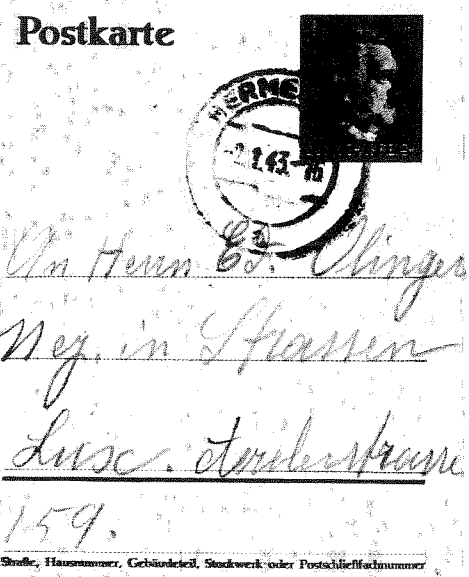 Postkarte
-2.1.43.-
An Herrn Ed. Olinger
in Strassen
Lux. Arelerstrasse
159.
Straße, Hausnummer, Gebäudeteil, Stockwerk oder Postschließfachnummer